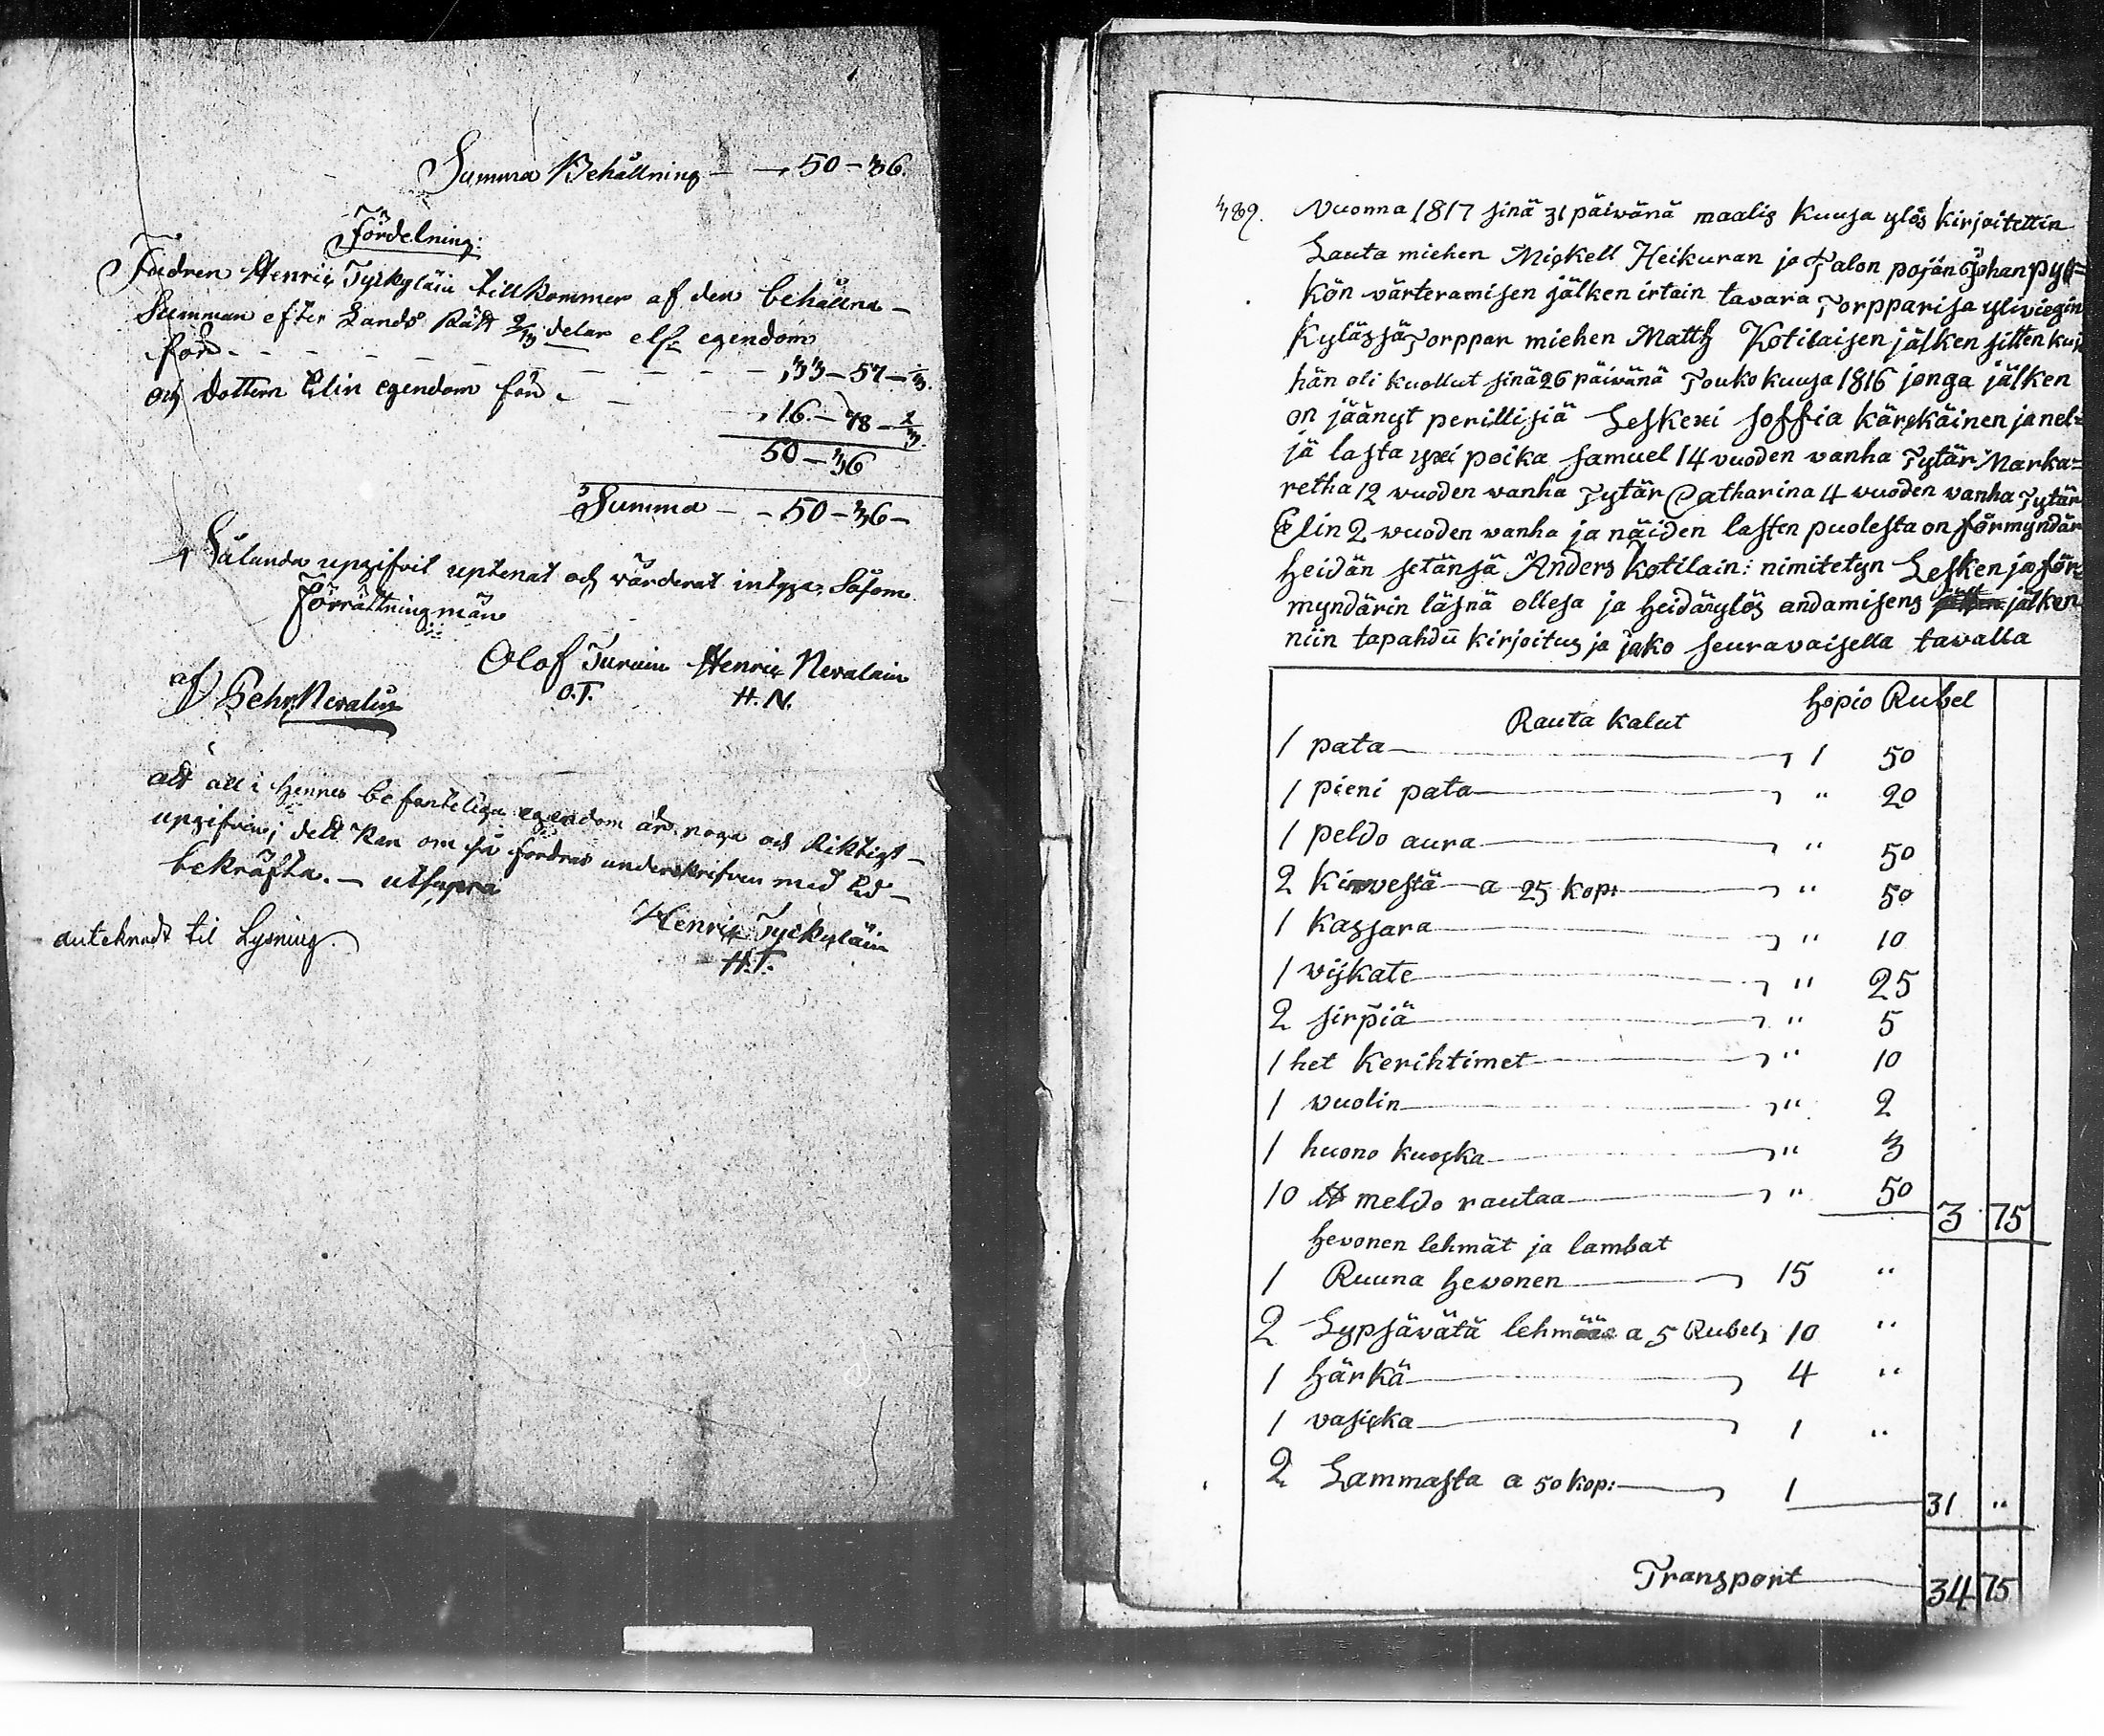 Summa Behållning — 50 — 36.
Fördelning:
Fadren Henric Tyckyläin tillkommer af den behållna —
Summan efter Lands Rätt 2/3 delar elr egendom
för - - - - - - - 33 — 57 — 1/3.
och dottern Elin egendom för - 16. — 78 — 2/3.
50 — 36
Summa — 50 — 36 —
Sålunda upgifvit uptecnat och värderat intyga, Såsom
Förrättningmän
Olof Turuin Henric Nevalain
O.T. H.N.
af Gehr: Nevalus
att all i Hennes befinteliga egendom är noga och Riktigt —
upgifven; dett kan om så fordras underskrifven med Ed —
bekräfta. — utsupra
Henric Tyckyläin
H.T.
anteknadt til Lysning.
389. Vuonna 1817 sinä 31 päivänä maalis Kuusa ylös kirjoitettin
Lauta miehen Mickell Heikuran ja Talon pojan Johan Pyk=
kön värteramisen jälken irtain tavara Torpparisa yliviegin
Kylässä Torppar miehen Matts Kotilaisen jälken sitten kuin
hän oli kuollut sinä 26 päivänä Touko kuusa 1816 jonga jälken
on jäänyt perillisiä Leskexi Soffia kärckäinen ja nel=
jä lasta yxi poika Samuel 14 vuoden vanha Tytär Marka=
retha 12 wuoden wanha Tytär Catharina 4 wuoden vanha Tytär
Elin 2 wuoden wanha ja näiden lasten puolesta on förmyndär
heidän setänsä Anders Kotilain: nimitetyn Lesken ja för=
myndärin läsnä ollesa ja heidän ylös andamisens jälken
niin tapahdu kirjoitus ja jako seuravaisella tawalla
Rauta kalut hopio Rubel
1 pata — 1 50
1 pieni pata — " 20
1 peldo aura — " 50
2 Kirvestä — a 25 kop: — " 50
1 Kassara — " 10
1 vijkate — " 25
2 sirpiä — " 5
1 het Kerihtimet — " 10
1 wuolin — " 2
1 huono kuocka — " 3
10 ℔ meldo rautaa — " 50 3 75
hevonen lehmät ja lambat
1 Ruuna hewonen — 15 "
2 Lypsävätä lehmää a 5 Rubel, 10 "
1 härkä — 4 "
1 vasicka — 1 "
2 Lammasta a 50 kop: — 1 31 "
Transport — 34 75